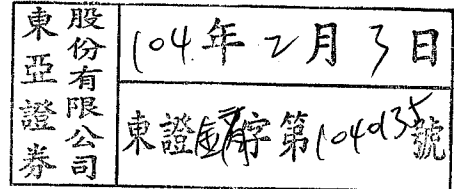 東亞證券
股份有限公司
104年2月3日
東證字第1040135號